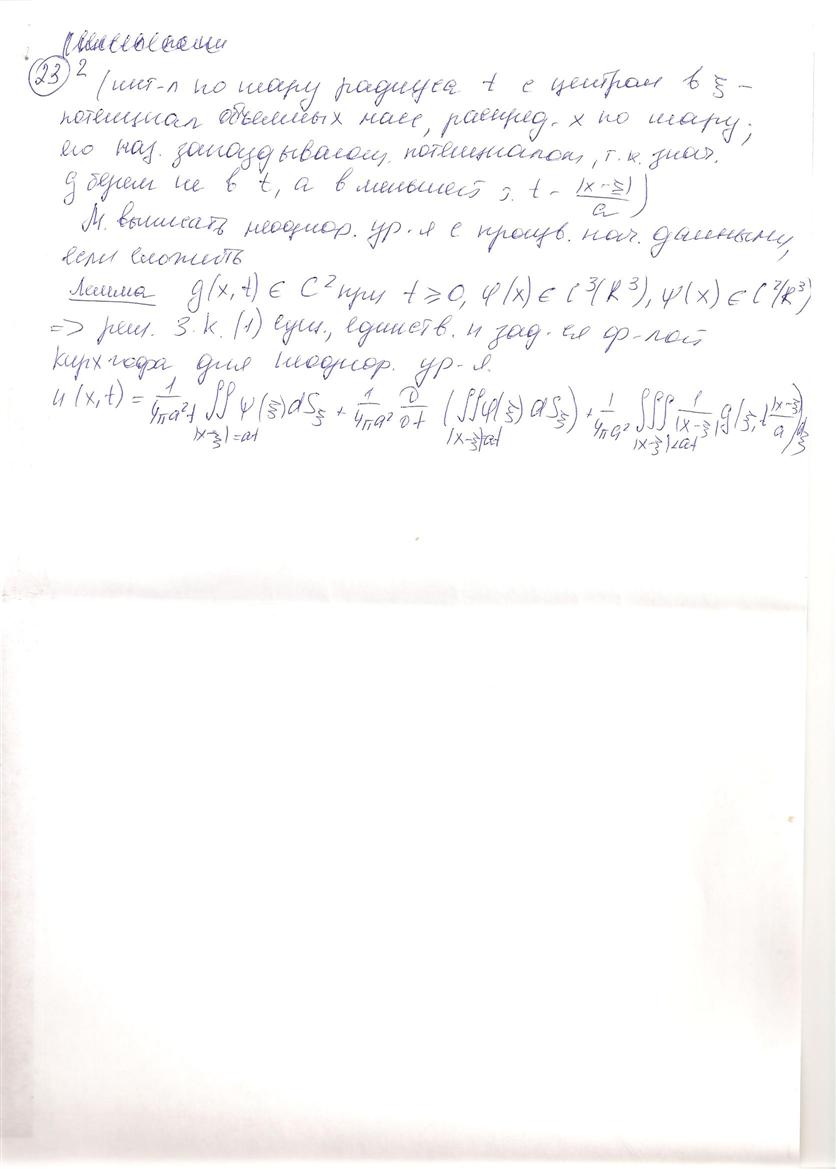 23 2 (инт-л по шару радиуса t с центром в ξ –
потенциал объемных масс, распред-х по шару;
его наз. запаздывающ. потенциалом, т.к. знач.
g берем не в t, а в меньшей т. t - |x-ξ|/a)
М. выписать неоднор. ур-я с произв. нач. данными,
если сложить
Лемма g(x,t) ∈ C² при t ≥ 0, φ(x) ∈ C³(R³), ψ(x) ∈ C²(R³)
=> реш. З.К. (1) сущ., единств. и зад-ся ф-лой
Кирхгофа для неоднор. ур-я.
u(x,t) = 1/(4πa²t) ∬_{|x-ξ|=at} ψ(ξ)dS_ξ + 1/(4πa²) ∂/∂t (∬_{|x-ξ|=at} φ(ξ) dS_ξ) + 1/(4πa²) ∭_{|x-ξ|<at} 1/|x-ξ| g(ξ, t-|x-ξ|/a) dξ